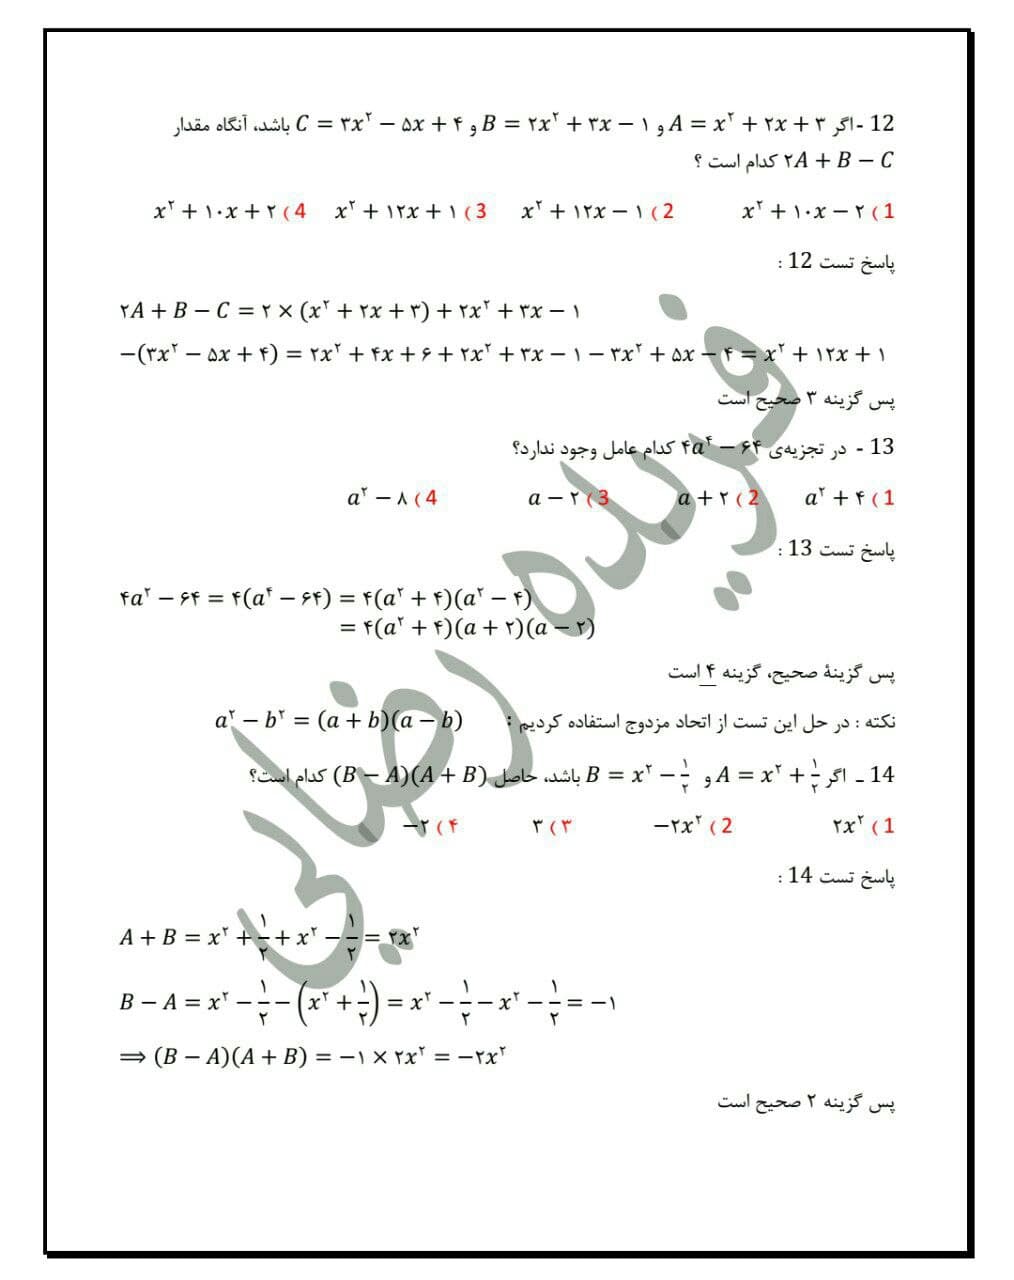 12 -اگر A = x² + ۲x + ۳ و B = ۲x² + ۳x − ۱ و C = ۳x² − ۵x + ۴ باشد، آنگاه مقدار
۲A + B − C کدام است ؟
1) x² + ۱۰x − ۲ 2) x² + ۱۲x − ۱ 3) x² + ۱۲x + ۱ 4) x² + ۱۰x + ۲
پاسخ تست 12 :
۲A + B − C = ۲ × (x² + ۲x + ۳) + ۲x² + ۳x − ۱
−(۳x² − ۵x + ۴) = ۲x² + ۴x + ۶ + ۲x² + ۳x − ۱ − ۳x² + ۵x − ۴ = x² + ۱۲x + ۱
پس گزینه ۳ صحیح است
13 - در تجزیه‌ی ۴a⁴ − ۶۴ کدام عامل وجود ندارد؟
1) a² + ۴ 2) a + ۲ 3) a − ۲ 4) a² − ۸
پاسخ تست 13 :
۴a² − ۶۴ = ۴(a⁴ − ۶۴) = ۴(a² + ۴)(a² − ۴)
= ۴(a² + ۴)(a + ۲)(a − ۲)
پس گزینهٔ صحیح، گزینه ۴ است
نکته : در حل این تست از اتحاد مزدوج استفاده کردیم : a² − b² = (a + b)(a − b)
14 ـ اگر A = x² + ۱/۲ و B = x² − ۱/۲ باشد، حاصل (B − A)(A + B) کدام است؟
1) ۲x² 2) −۲x² ۳) ۳ ۴) −۲
پاسخ تست 14 :
A + B = x² + ۱/۲ + x² − ۱/۲ = ۲x²
B − A = x² − ۱/۲ − (x² + ۱/۲) = x² − ۱/۲ − x² − ۱/۲ = −۱
⟹ (B − A)(A + B) = −۱ × ۲x² = −۲x²
پس گزینه ۲ صحیح است
فریده رضایی